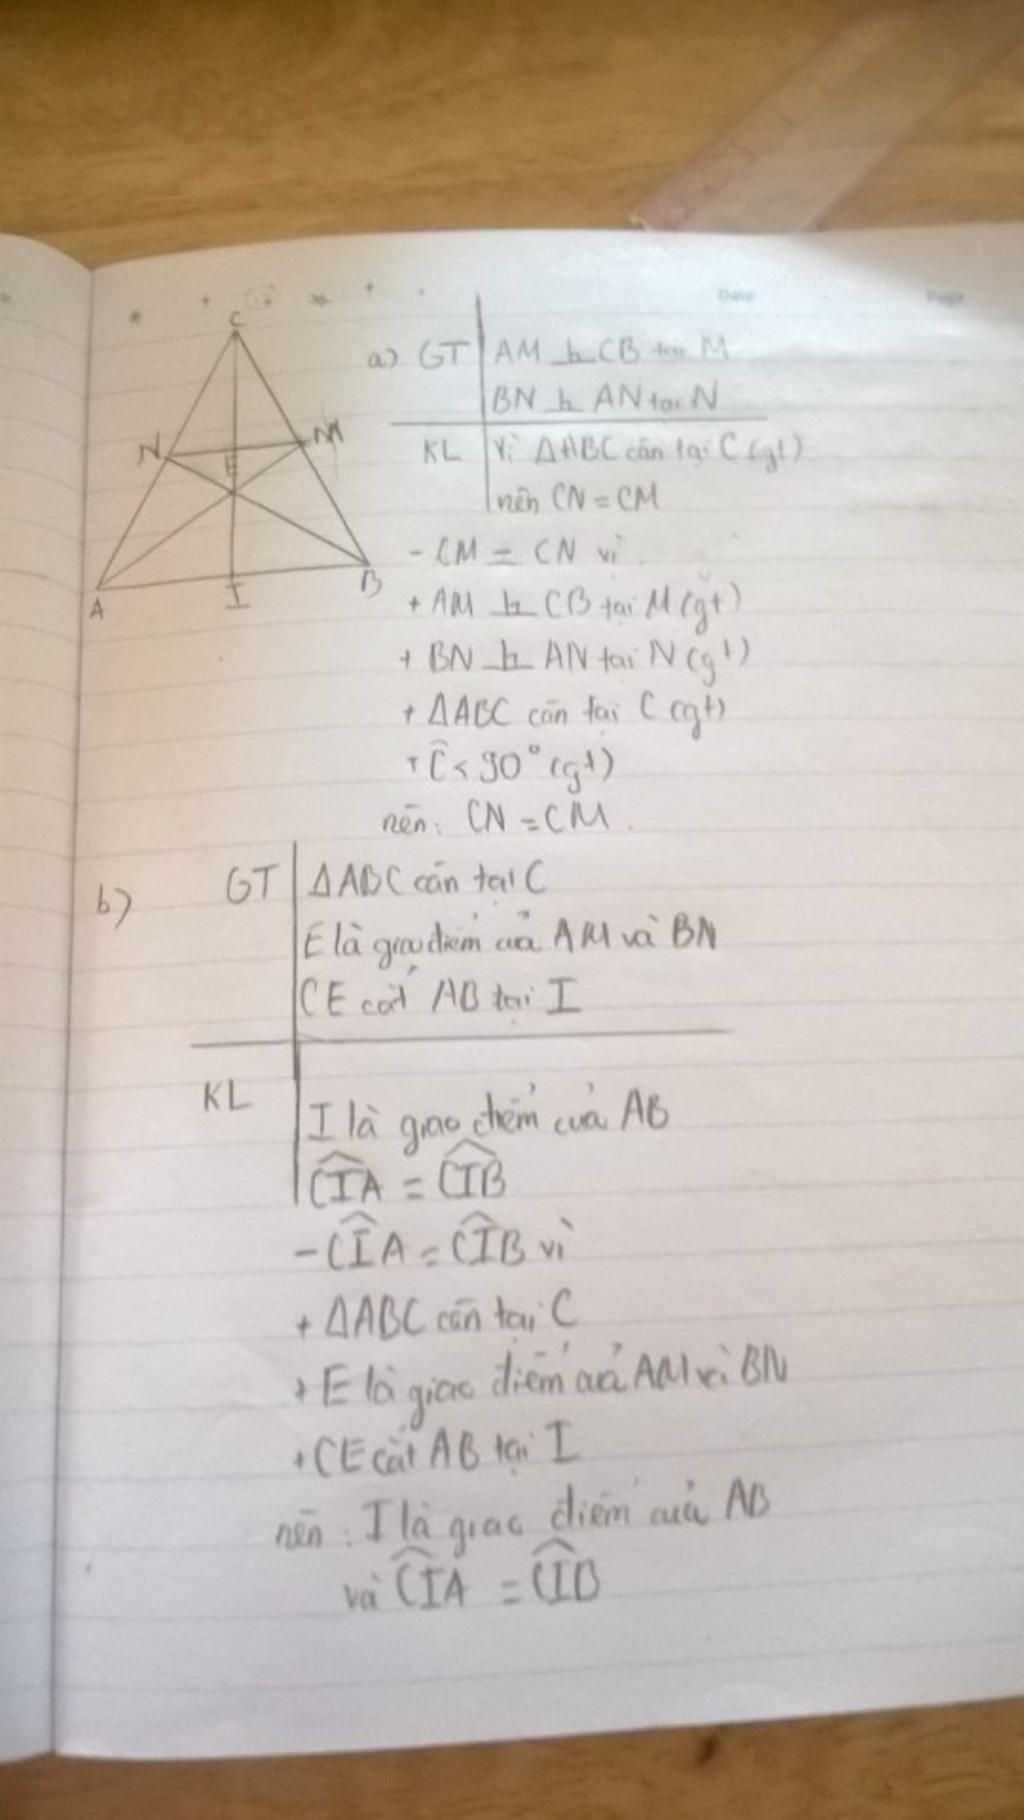 Date Page
C
N M
E
A I B
a) GT AM ⊥ CB tại M
BN ⊥ AN tại N
KL Vì ΔABC cân tại C (gt)
nên CN = CM
- CM = CN vì
+ AM ⊥ CB tại M (gt)
+ BN ⊥ AN tại N (gt)
+ ΔABC cân tại C (gt)
+ Ĉ < 90° (gt)
nên: CN = CM.
b) GT ΔABC cân tại C
E là giao điểm của AM và BN
CE cắt AB tại I
KL
I là giao điểm của AB
CÎA = CÎB
- CÎA = CÎB vì
+ ΔABC cân tại C
+ E là giao điểm của AM và BN
+ CE cắt AB tại I
nên: I là giao điểm của AB
và CÎA = CÎB